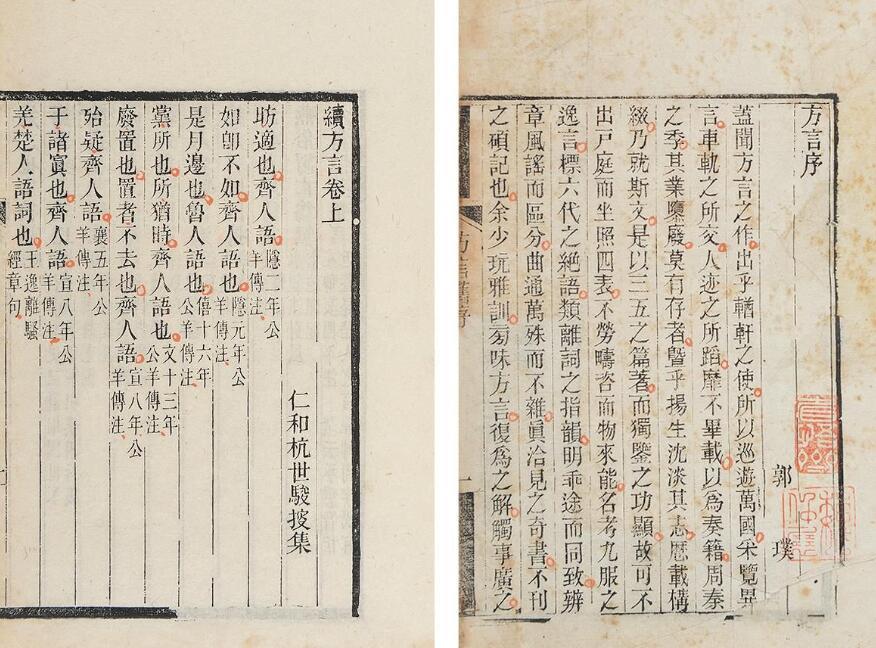 方言序
郭璞
蓋聞方言之作出乎輶軒之使所以巡遊萬國采覽異
言車軌之所交人迹之所蹈靡不畢載以爲奏籍周秦
之季其業隳廢莫有存者曁乎揚生沈淡其志厯載構
綴乃就斯文是以三五之篇著而獨鑒之功顯故可不
出戸庭而坐照四表不勞疇咨而物來能名考九服之
逸言標六代之絶語類離詞之指韻明乖途而同致辨
章風謠而區分曲通萬殊而不雜眞洽見之奇書不刊
之碩記也余少玩雅訓㫄味方言復爲之解觸事廣之
續方言卷上
仁和杭世駿搜集
昉適也齊人語隱二年公羊傳注
如卽不如齊人語也隱元年公羊傳注
是月邊也魯人語也僖十六年公羊傳注
黨所也所猶時齊人語也文十三年公羊傳注
廢置也置者不去也齊人語宣八年公羊傳注
殆疑齊人語襄五年公羊傳注
于諸寘也齊人語宣八年公羊傳注
羌楚人語詞也王逸離騷經章句